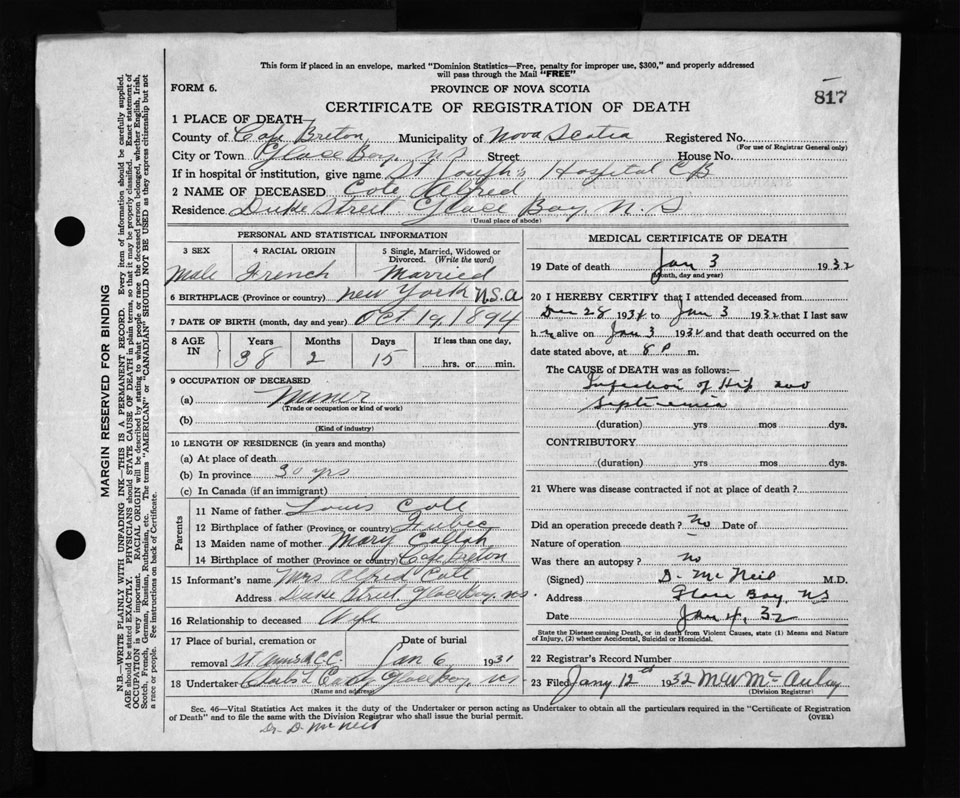 This form if placed in an envelope, marked "Dominion Statistics—Free, penalty for improper use, $300," and properly addressed
will pass through the Mail "FREE"
FORM 6. PROVINCE OF NOVA SCOTIA
817
CERTIFICATE OF REGISTRATION OF DEATH
1 PLACE OF DEATH—
County of Cape Breton Municipality of Nova Scotia Registered No.
(For use of Registrar General only)
City or Town Glace Bay, NS Street House No.
If in hospital or institution, give name St Joseph's Hospital CB
2 NAME OF DECEASED Cote Alfred
Residence Duke Street Glace Bay, N.S
(Usual place of abode)
PERSONAL AND STATISTICAL INFORMATION
3 SEX 4 RACIAL ORIGIN 5 Single, Married, Widowed or
Divorced. (Write the word)
Male French Married
6 BIRTHPLACE (Province or country) New York U.S.A
7 DATE OF BIRTH (month, day and year) Oct 19, 1894
8 AGE IN Years Months Days If less than one day,
38 2 15 hrs. or min.
9 OCCUPATION OF DECEASED
(a) Miner
(Trade or occupation or kind of work)
(b)
(Kind of industry)
10 LENGTH OF RESIDENCE (in years and months)
(a) At place of death
(b) In province 30 yrs
(c) In Canada (if an immigrant)
Parents
11 Name of father Louis Cote
12 Birthplace of father (Province or country) Qubec
13 Maiden name of mother Mary
14 Birthplace of mother (Province or country) Cape Breton
15 Informant's name Mrs Alfred Cote
Address Duke Street Glace Bay, NS.
16 Relationship to deceased Wife
17 Place of burial, cremation or Date of burial
removal St Anns R.C.C. Jan 6 1931
18 Undertaker Glace Bay, NS.
(Name and address)
MEDICAL CERTIFICATE OF DEATH
19 Date of death Jan 3 1932
(Month, day and year)
20 I HEREBY CERTIFY that I attended deceased from
Dec 28 1931 to Jan 3 1932 that I last saw
h im alive on Jan 3 1932 and that death occurred on the
date stated above, at 8 P. m.
The CAUSE of DEATH was as follows:—
Infection of Hip and
Septicemia
(duration) yrs mos dys.
CONTRIBUTORY
(duration) yrs mos dys.
21 Where was disease contracted if not at place of death?
Did an operation precede death? No Date of
Nature of operation
Was there an autopsy? No
(Signed) D. McNeil M.D.
Address Glace Bay, NS
Date Jan 4, 32
State the Disease causing Death, or in death from Violent Causes, state (1) Means and Nature
of Injury, (2) whether Accidental, Suicidal or Homicidal.
22 Registrar's Record Number
23 Filed Jany 12 1932 M W McAulay
(Division Registrar)
Sec. 46—Vital Statistics Act makes it the duty of the Undertaker or person acting as Undertaker to obtain all the particulars required in the "Certificate of Registration
of Death" and to file the same with the Division Registrar who shall issue the burial permit. (OVER)
Dr. D. McNeil
MARGIN RESERVED FOR BINDING
N.B.—WRITE PLAINLY WITH UNFADING INK—THIS IS A PERMANENT RECORD. Every item of information should be carefully supplied.
AGE should be stated EXACTLY. PHYSICIANS should STATE CAUSE OF DEATH in plain terms, so that it may be properly classified. Exact statement of
OCCUPATION is very important. RACIAL ORIGIN will be described by stating to what people or race the deceased person belonged, whether English, Irish,
Scotch, French, German, Russian, Ruthenian, etc. The terms "AMERICAN" or "CANADIAN" SHOULD NOT BE USED as they express citizenship but not
a race or people. See instructions on back of Certificate.